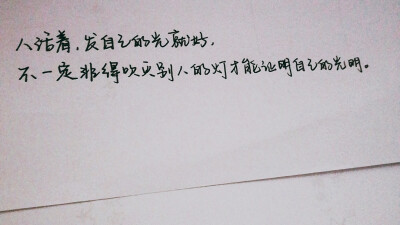 人活着，发自己的光就好，
不一定非得吹灭别人的灯才能证明自己的光明。